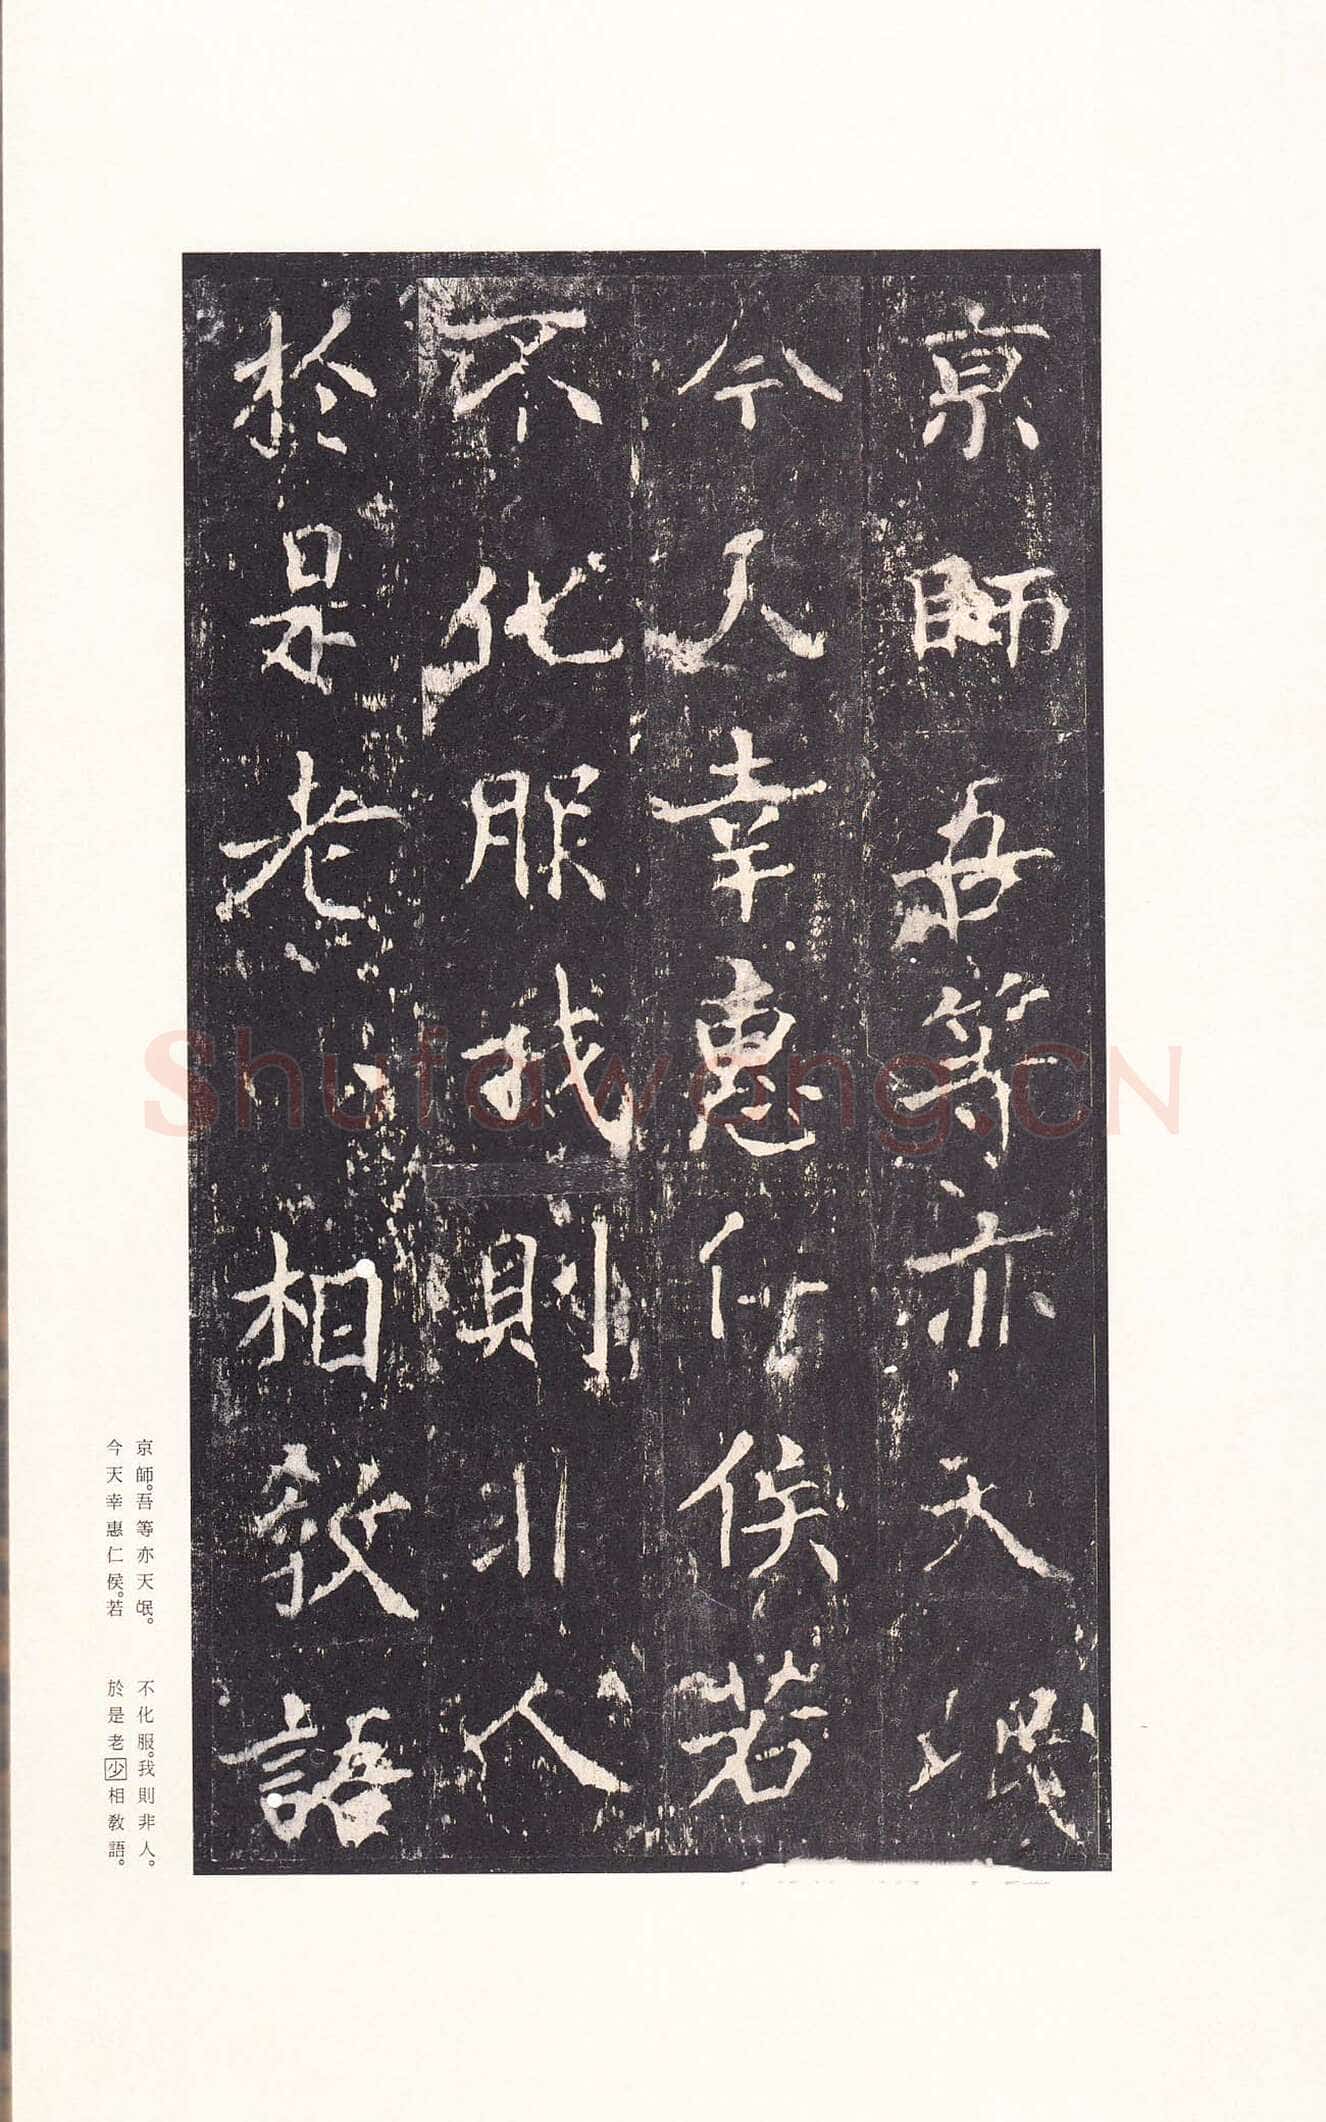 京師吾等亦天氓
今天幸惠仁侯若
不化服我則非人
於是老少相教語
京師。吾等亦天氓。
今天幸惠仁侯。若
不化服。我則非人。
於是老少相教語。
Shufawang.CN